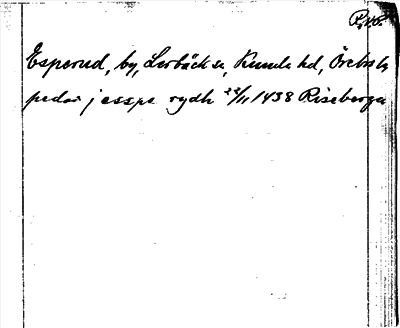 Esperud, by, Lerbäck sn, Kumla hd, Örebro l,
pedar j esspe rydh 22/11 1438 Riseberga